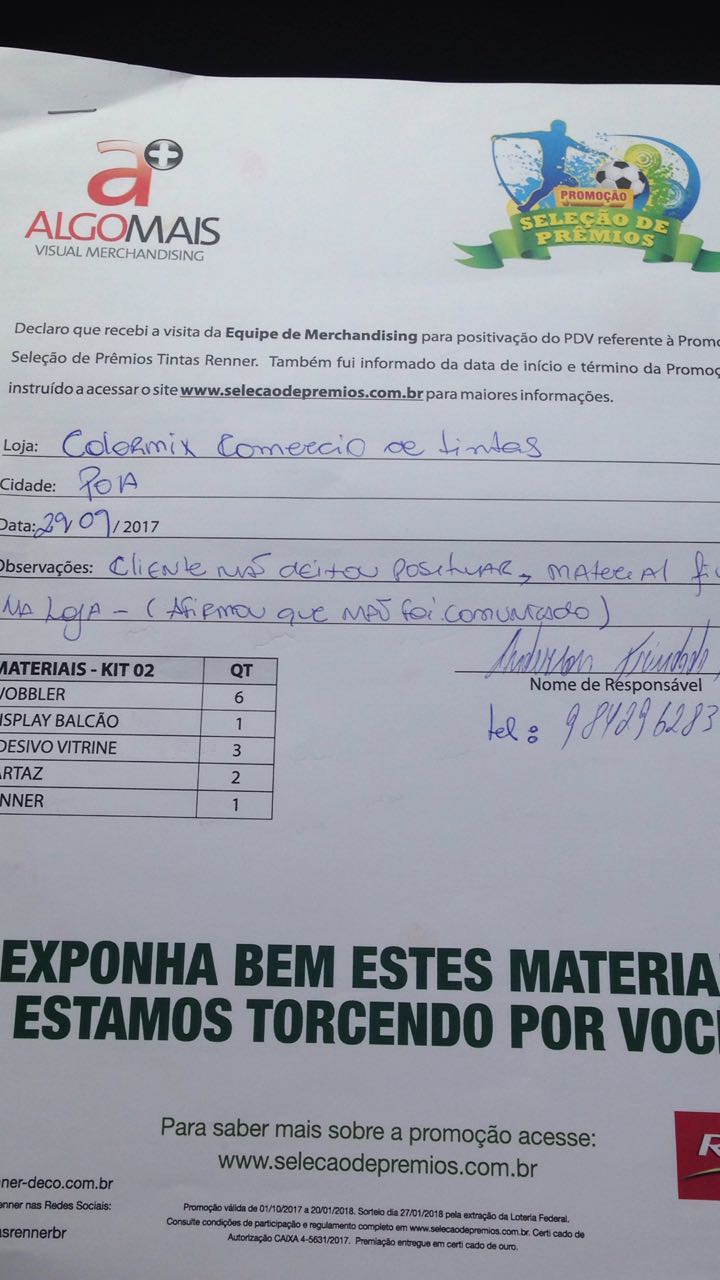 a+
ALGOMAIS
VISUAL MERCHANDISING
PROMOÇÃO
SELEÇÃO DE
PRÊMIOS
Declaro que recebi a visita da Equipe de Merchandising para positivação do PDV referente à Promo
Seleção de Prêmios Tintas Renner. Também fui informado da data de início e término da Promoç
instruído a acessar o site www.selecaodepremios.com.br para maiores informações.
Loja: Colormix Comercio de tintas
Cidade: POA
Data: 29 09 / 2017
Observações: Cliente não deixou positivar, material fi
na loja - (Afirmou que não foi comunicado)
MATERIAIS - KIT 02 QT
WOBBLER 6
ISPLAY BALCÃO 1
DESIVO VITRINE 3
ARTAZ 2
NNER 1
Anderson
Nome de Responsável
tel: 984296283
EXPONHA BEM ESTES MATERIA
ESTAMOS TORCENDO POR VOCÊ
Para saber mais sobre a promoção acesse:
www.selecaodepremios.com.br
R
ner-deco.com.br
enner nas Redes Sociais:
asrennerbr
Promoção válida de 01/10/2017 a 20/01/2018. Sorteio dia 27/01/2018 pela extração da Loteria Federal.
Consulte condições de participação e regulamento completo em www.selecaodepremios.com.br. Certi cado de
Autorização CAIXA 4-5631/2017. Premiação entregue em certi cado de ouro.